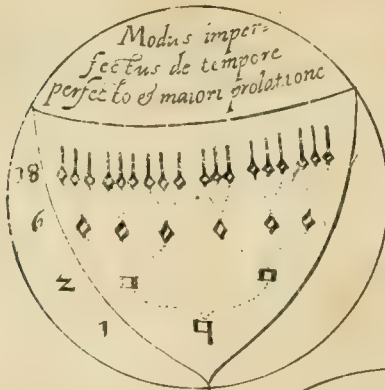 Modus imper-
fectus de tempore
perfecto et maiori prolatione
18
6
2
1